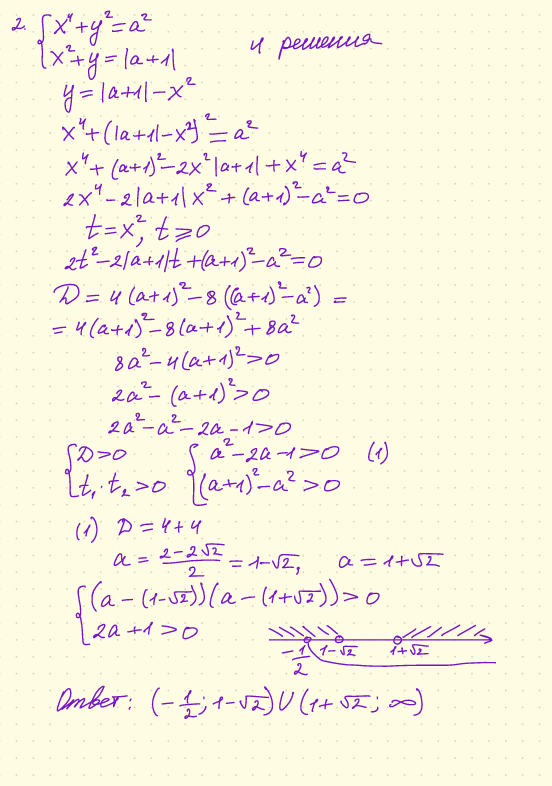 2. { x⁴ + y² = a²
{ x² + y = |a+1|
4 решения
y = |a+1| - x²
x⁴ + (|a+1| - x²)² = a²
x⁴ + (a+1)² - 2x²|a+1| + x⁴ = a²
2x⁴ - 2|a+1|x² + (a+1)² - a² = 0
t = x², t ⩾ 0
2t² - 2|a+1|t + (a+1)² - a² = 0
D = 4(a+1)² - 8((a+1)² - a²) =
= 4(a+1)² - 8(a+1)² + 8a²
8a² - 4(a+1)² > 0
2a² - (a+1)² > 0
2a² - a² - 2a - 1 > 0
{ D > 0 { a² - 2a - 1 > 0 (1)
{ t₁ · t₂ > 0 { (a+1)² - a² > 0
(1) D = 4 + 4
a = (2 - 2√2)/2 = 1 - √2, a = 1 + √2
{ (a - (1-√2))(a - (1+√2)) > 0
{ 2a + 1 > 0
-1/2 1-√2 1+√2
Ответ: (-1/2; 1-√2) U (1+√2; ∞)